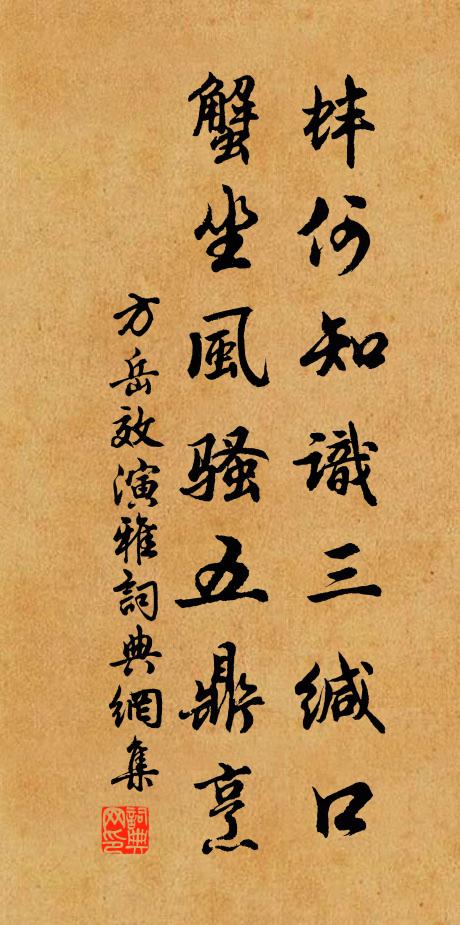 蚌何知識三緘口
蟹坐風騷五鼎烹
方岳效演雅詞典網集
詞典網印